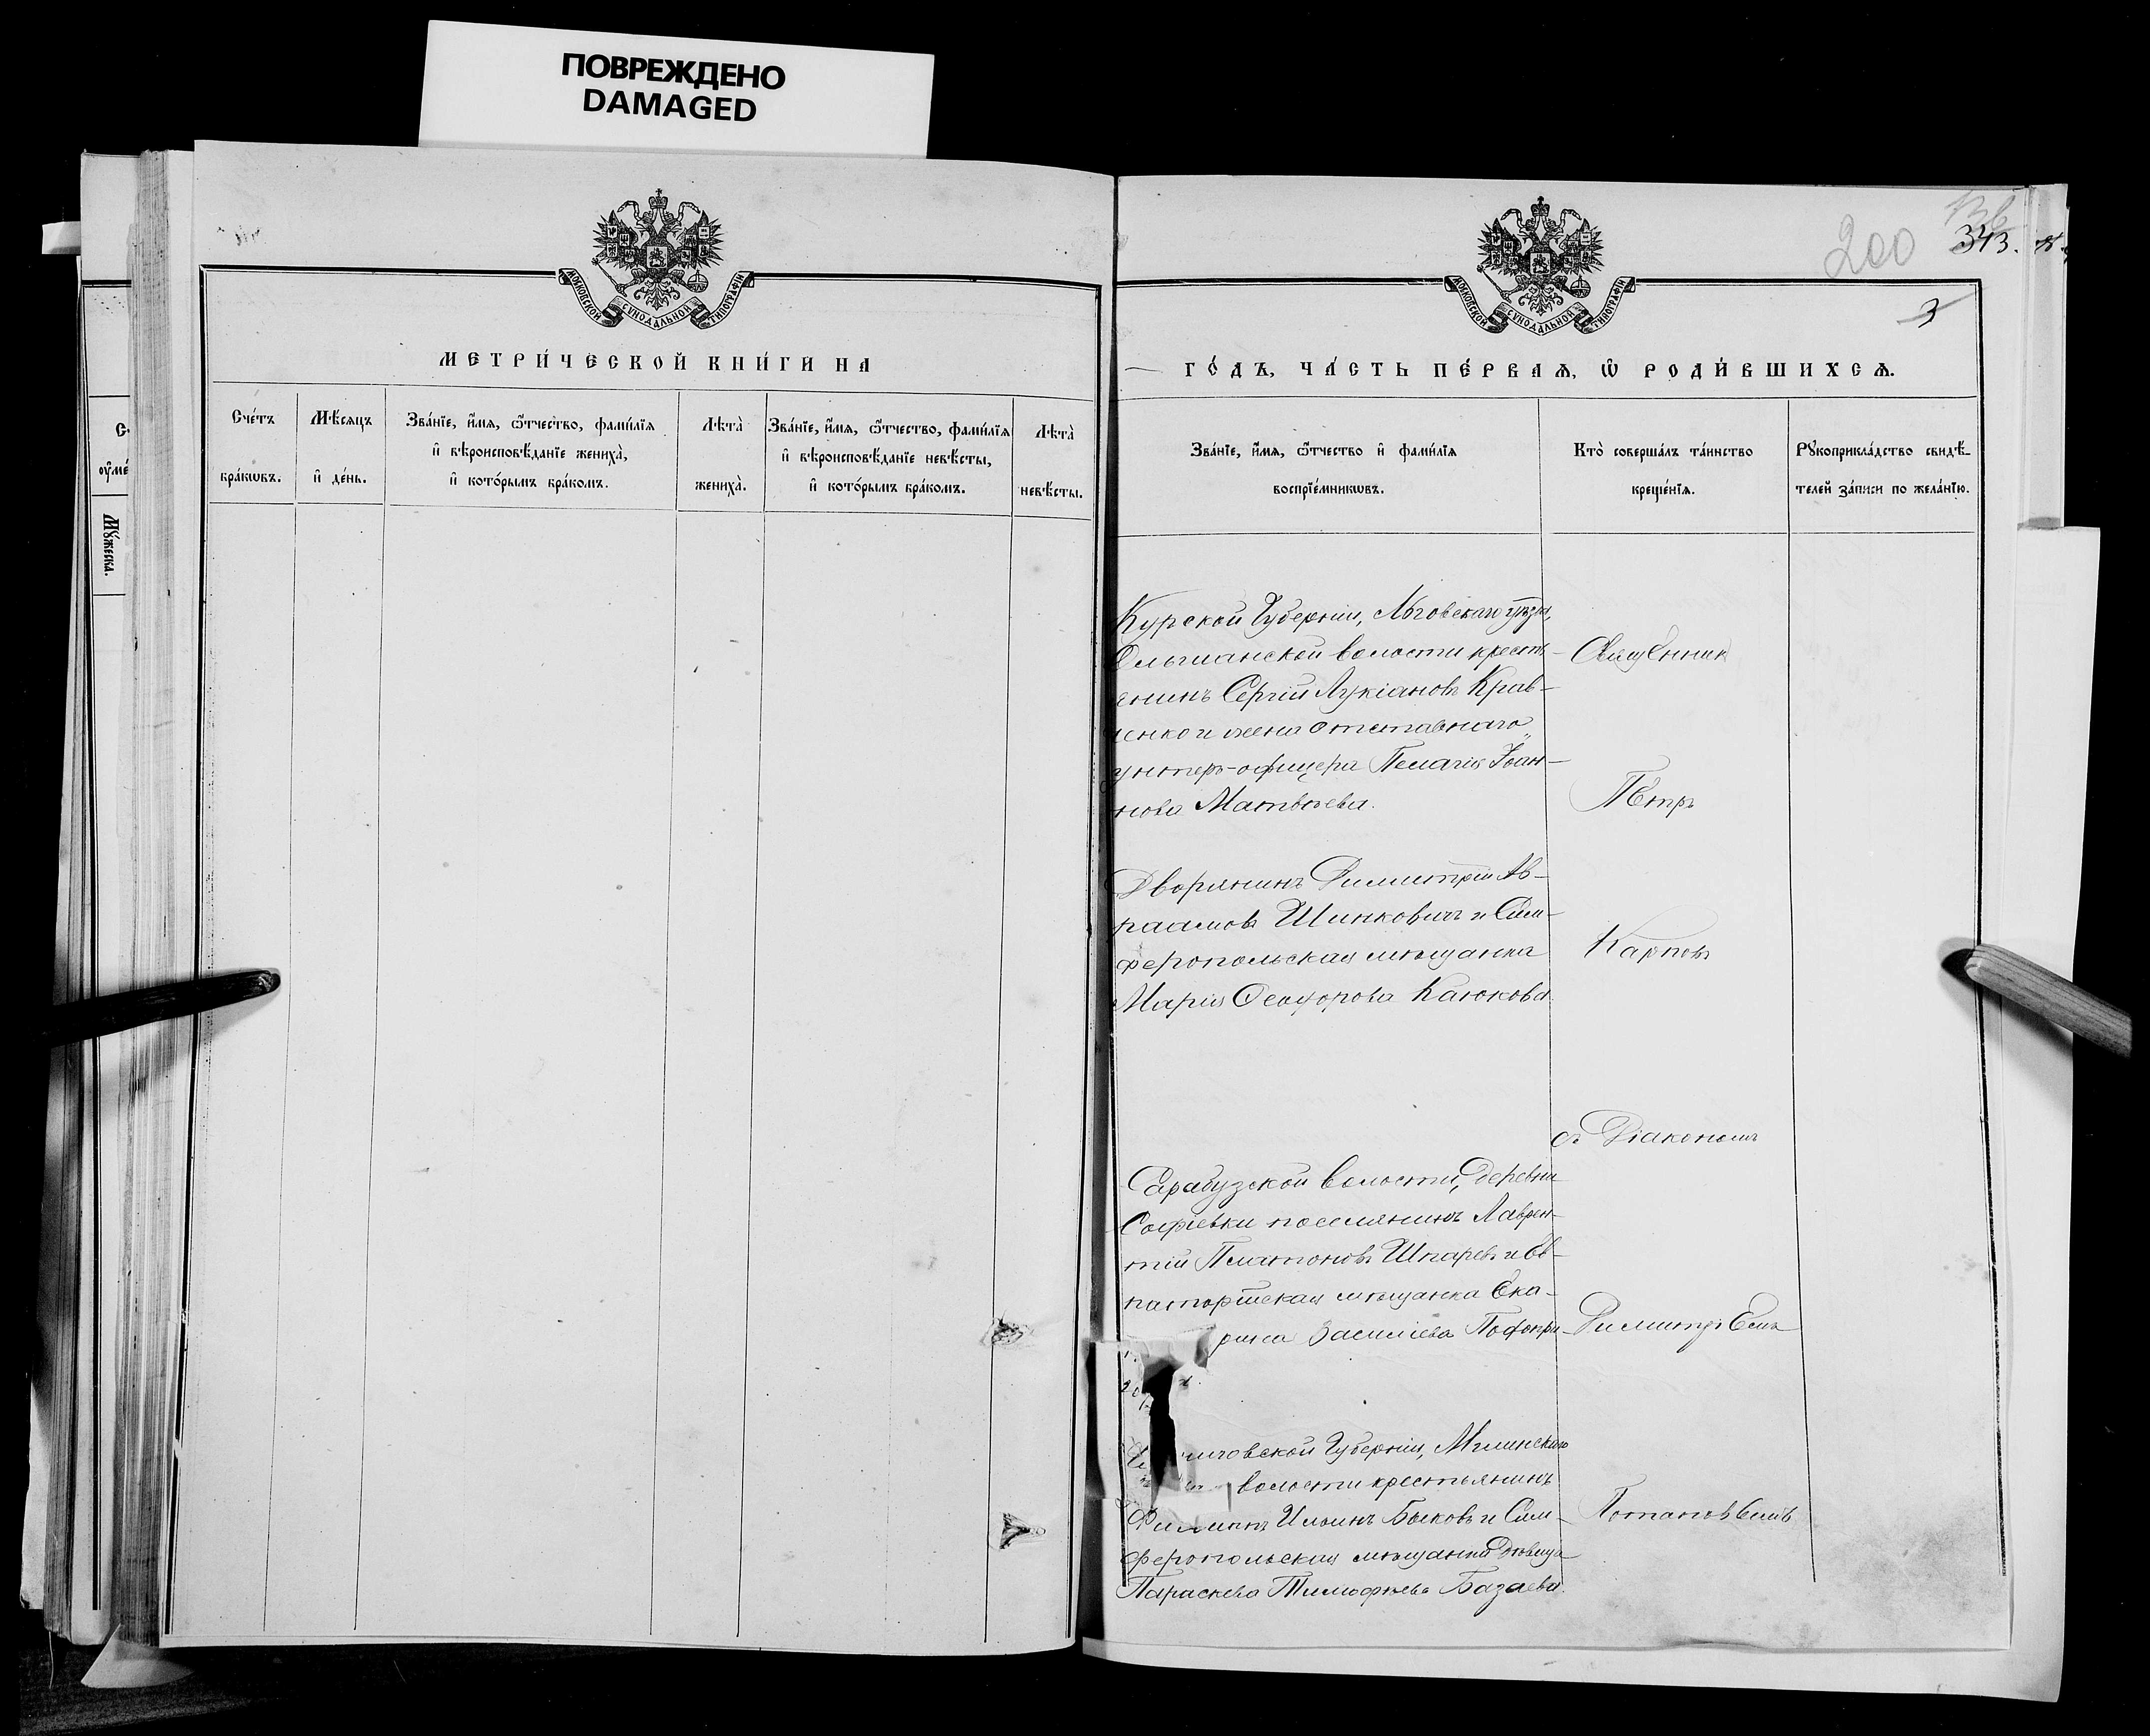 ПОВРЕЖДЕНО
DAMAGED
МОСКОВСКОЙ СѴНОДАЛЬНОЙ ТИПОГРАФІИ
МЕТРИ́ЧЕСКОЙ КНИ́ГИ НА
Сче́тъ бра́кѡвъ.
Мѣ́сяцъ и҆ де́нь.
Зва́нїе, и҆́мя, ѻ҆́тчество, фами́лїя
и҆ вѣроисповѣ́данїе жениха̀,
и҆ кото́рымъ бра́комъ.
Лѣта̀ жениха̀.
Зва́нїе, и҆́мя, ѻ҆́тчество, фами́лїя
и҆ вѣроисповѣ́данїе невѣ́сты,
и҆ кото́рымъ бра́комъ.
Лѣта̀ невѣ́сты.
Мꙋ́жеска.
200
343.
3
МОСКОВСКОЙ СѴНОДАЛЬНОЙ ТИПОГРАФІИ
ГО́ДЪ, ЧА́СТЬ ПЕ́РВАѦ, Ѡ҆ РОДИ́ВШИХСѦ.
Зва́нїе, и҆́мя, ѻ҆́тчество и҆ фами́лїя
воспрїе́мникѡвъ.
Кто̀ соверша́лъ та́инство
креще́нїя.
Рꙋкоприкла́дство свидѣ́-
телей за́писи по жела́нїю.
Курской Губерніи, Льговскаго уѣзда,
Ольшанской волости кресть-
янинъ Сергій Лукіановъ Крав-
ченко и жена отставнаго
унтеръ-офицера Пелагія Іоан-
нова Матвѣева.
Дворянинъ Димитрій Ав-
раамовъ Шинковичъ и Сим-
феропольская мѣщанка
Марія Ѳеодорова Каюкова
Сарабузской волости, деревни
Софіевки поселянинъ Лаврен-
тій Платоновъ Шпаревъ и Ев-
паторійская мѣщанка Ека-
рина Василіева Подопри-
говской Губерніи, Мглинскаго
волости крестьянинъ
Филиппъ Ильинъ Быковъ и Сим-
феропольская мѣщанка дѣвица
Параскева Тимофѣева Базаева.
Священник
Петръ
Карповъ
съ Діакономъ